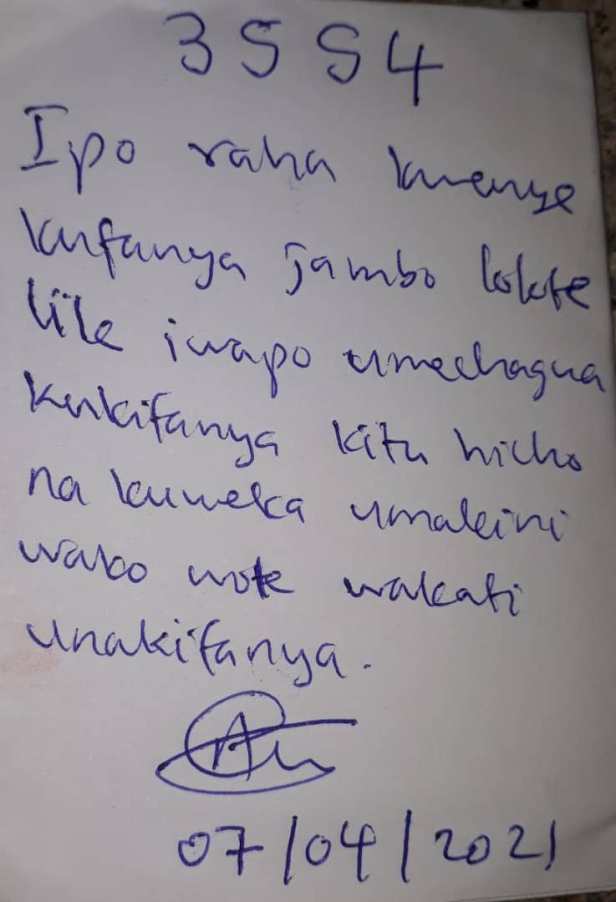 3554
Ipo raha kwenye
kufanya jambo lolote
lile iwapo umechagua
kukifanya kitu hicho
na kuweka umakini
wako wote wakati
unakifanya.
07/04/2021